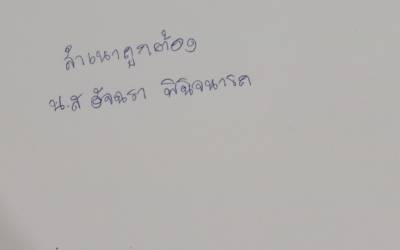 สำเนาถูกต้อง
น.ส อัจฉรา พินิจนารถ